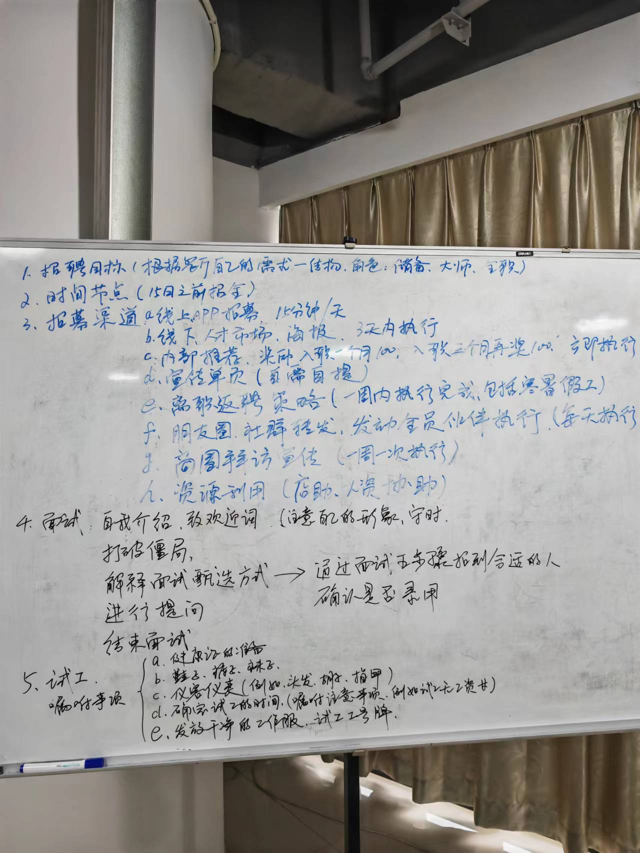 1. 招聘目标(根据客厅自己的需求—结构、角色:储备、大师、主职)
2. 时间节点(15日之前招全)
3. 招募渠道 a.线上APP招募, 15分钟/天
b.线下人才市场、海报、3天内执行
c.内部推荐、奖励 入职一个月100, 入职三个月再奖100. 立即执行
d.宣传单页(自带自提)
e.离职返聘 策略(一周内执行完成,包括寒暑假工)
f.朋友圈.社群转发, 发动全员伙伴执行,(每天执行)
g.商圈拜访宣传(一周一次执行)
h.资源利用(店助、人资协助)
4. 面试. 自我介绍、致欢迎词(注意自己的形象,守时.
打破僵局,
解释面试甄选方式 → 通过面试五步骤招到合适的人
进行提问 确认是否录用
结束面试
5. 试工. a.健康证的准备
嘱咐事项 b.鞋子、裤子、袜子.
c.仪容仪表(例如:头发、胡子、指甲)
d.确定试工的时间,(嘱咐注意事项,例如试工天工资廿)
e.发放干净的工作服、试工工号牌.
...